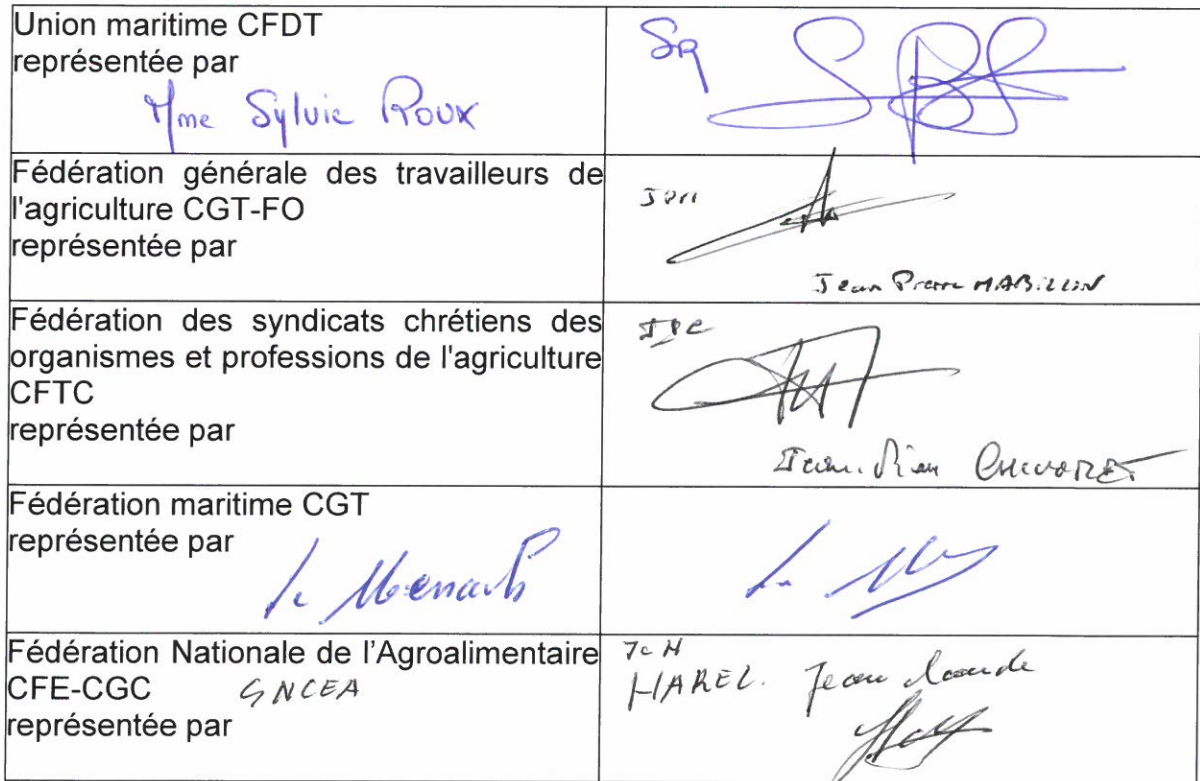 Union maritime CFDT
représentée par
Mme Sylvie Roux
SR
Fédération générale des travailleurs de
l'agriculture CGT-FO
représentée par
JPM
Jean Pierre MABILLON
Fédération des syndicats chrétiens des
organismes et professions de l'agriculture
CFTC
représentée par
JPC
Jean
Fédération maritime CGT
représentée par
Fédération Nationale de l'Agroalimentaire
CFE-CGC SNCEA
représentée par
JCH
HAREL Jean Claude